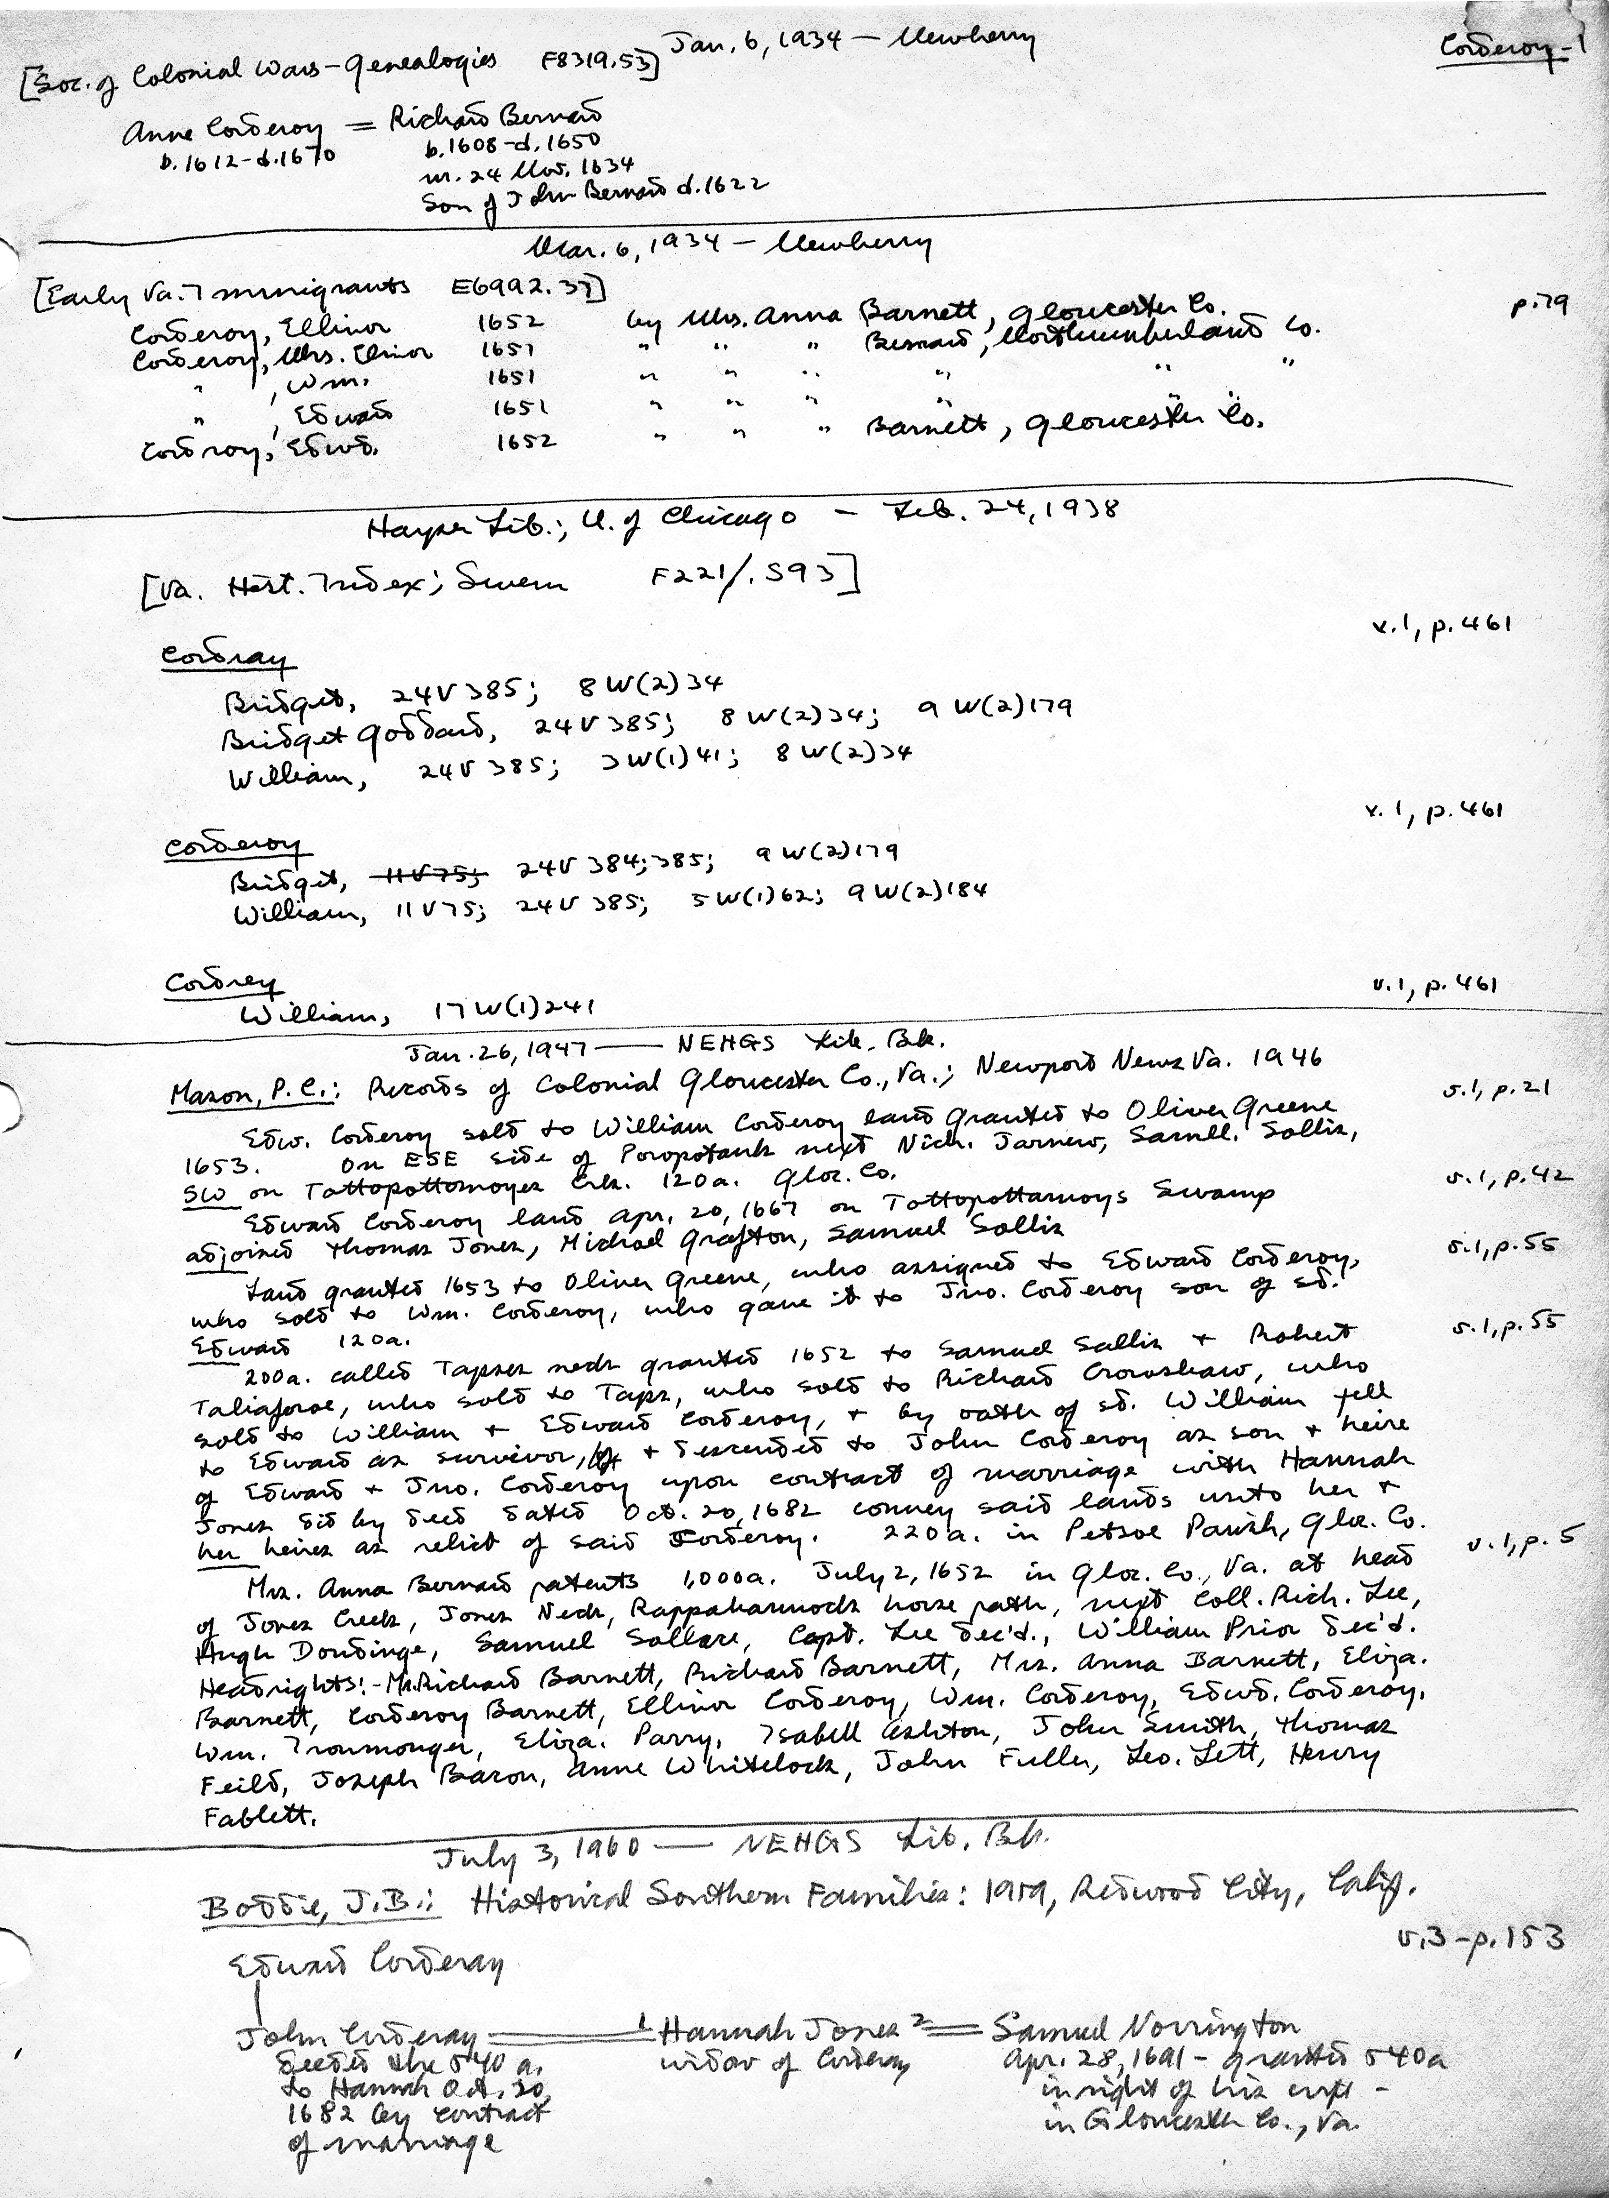 Corderoy-1
Jan. 6, 1934 — Newberry
[Soc. of Colonial Wars - Genealogies F8319.53]
Anne Corderoy = Richard Bernard
b. 1612 - d. 1670 b. 1608 - d. 1650
m. 24 Nov. 1634
Son of John Bernard d. 1622
Mar. 6, 1934 — Newberry
[Early Va. Immigrants E6992.37]
p. 79
Corderoy, Ellinor 1652 by Mrs. Anna Barnett, Gloucester Co.
Corderoy, Mrs. Elinor 1651 " " " Bernard, Northumberland Co.
" , Wm. 1651 " " " " " "
" , Edward 1651 " " " " " "
Cordroy, Edwd. 1652 " " " Barnett, Gloucester Co.
Harper Lib.; U. of Chicago — Feb. 24, 1938
[Va. Hist. Index; Swem F221/.S93]
v. 1, p. 461
Cordray
Bridget, 24V385; 8W(2)34
Bridget Goddard, 24V385; 8W(2)34; 9W(2)179
William, 24V385; 3W(1)41; 8W(2)34
v. 1, p. 461
Corderoy
Bridget, 11V75; 24V384;385; 9W(2)179
William, 11V75; 24V385; 5W(1)62; 9W(2)184
Cordrey v. 1, p. 461
William, 17W(1)241
Jan. 26, 1947 — NEHGS Lib. Bk.
Mason, P.C.: Records of Colonial Gloucester Co., Va.; Newport News Va. 1946
v. 1, p. 21
Edw. Corderoy sold to William Corderoy land granted to Oliver Greene
1653. On ESE side of Poropotank next Nich. Jarnew, Samll. Sollis,
SW on Tottopottomoyes Crk. 120a. Gloc. Co.
v. 1, p. 42
Edward Corderoy land Apr. 20, 1667 on Tottopottamoys Swamp
adjoined Thomas Jones, Michael Grafton, Samuel Sollis
v. 1, p. 55
Land granted 1653 to Oliver Greene, who assigned to Edward Corderoy,
who sold to Wm. Corderoy, who gave it to Jno. Corderoy son of sd.
Edward 120a.
v. 1, p. 55
200a. called Tapses neck granted 1652 to Samuel Sallis + Robert
Taliaferoe, who sold to Taps, who sold to Richard Crowshaw, who
sold to William + Edward Corderoy, + by oath of sd. William fell
to Edward as survivor, + descended to John Corderoy as son + heire
of Edward + Jno. Corderoy upon contract of marriage with Hannah
Jones did by deed dated Oct. 20, 1682 convey said lands unto her +
her heires as relict of said Corderoy. 220a. in Petsoe Parish, Gloc. Co.
v. 1, p. 5
Mrs. Anna Bernard patents 1,000a. July 2, 1652 in Gloc. Co., Va. at head
of Jones Creek, Jones Neck, Rappahannock horse path, next Coll. Rich. Lee,
Hugh Dowdinge, Samuel Sallace, Capt. Lee dec'd., William Prior dec'd.
Headrights:- Mr. Richard Barnett, Richard Barnett, Mrs. Anna Barnett, Eliza.
Barnett, Corderoy Barnett, Ellinor Corderoy, Wm. Corderoy, Edwd. Corderoy,
Wm. Ironmonger, Eliza. Parry, Isabell Ashton, John Smith, Thomas
Feild, Joseph Bacon, Anne Whitelock, John Fuller, Leo. Lett, Henry
Fablett.
July 3, 1960 — NEHGS Lib. Bk.
Boddie, J.B.: Historical Southern Families: 1959, Redwood City, Calif.
v. 3 - p. 153
Edward Corderay
John Corderay = 1 Hannah Jones 2 = Samuel Norrington
deeded the 540 a. widow of Corderay Apr. 28, 1691 - granted 540a
to Hannah Oct. 20, in right of his wife -
1682 by contract in Gloucester Co., Va.
of marriage